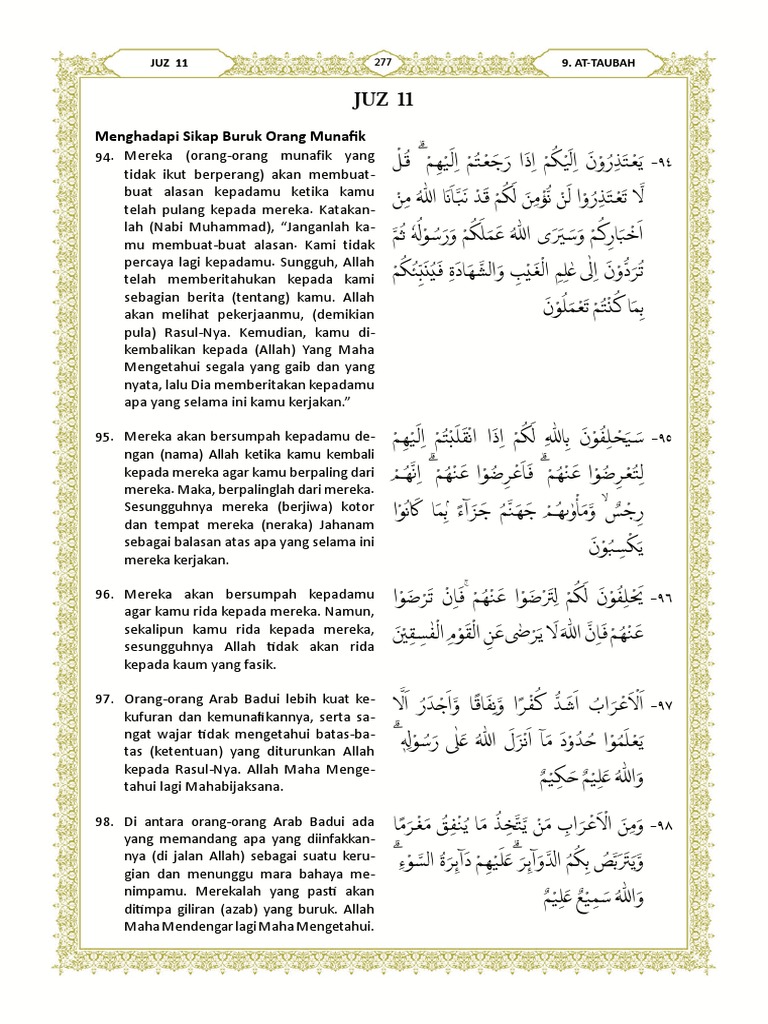 JUZ 11
277
9. AT-TAUBAH
JUZ 11
Menghadapi Sikap Buruk Orang Munafik
94. Mereka (orang-orang munafik yang
tidak ikut berperang) akan membuat-
buat alasan kepadamu ketika kamu
telah pulang kepada mereka. Katakan-
lah (Nabi Muhammad), “Janganlah ka-
mu membuat-buat alasan. Kami tidak
percaya lagi kepadamu. Sungguh, Allah
telah memberitahukan kepada kami
sebagian berita (tentang) kamu. Allah
akan melihat pekerjaanmu, (demikian
pula) Rasul-Nya. Kemudian, kamu di-
kembalikan kepada (Allah) Yang Maha
Mengetahui segala yang gaib dan yang
nyata, lalu Dia memberitakan kepadamu
apa yang selama ini kamu kerjakan.”
٩٤- يَعْتَذِرُوْنَ اِلَيْكُمْ اِذَا رَجَعْتُمْ اِلَيْهِمْ ۗ قُلْ
لَّا تَعْتَذِرُوْا لَنْ نُّؤْمِنَ لَكُمْ قَدْ نَبَّاَنَا اللّٰهُ مِنْ
اَخْبَارِكُمْ وَسَيَرَى اللّٰهُ عَمَلَكُمْ وَرَسُوْلُهٗ ثُمَّ
تُرَدُّوْنَ اِلٰى عٰلِمِ الْغَيْبِ وَالشَّهَادَةِ فَيُنَبِّئُكُمْ
بِمَا كُنْتُمْ تَعْمَلُوْنَ
95. Mereka akan bersumpah kepadamu de-
ngan (nama) Allah ketika kamu kembali
kepada mereka agar kamu berpaling dari
mereka. Maka, berpalinglah dari mereka.
Sesungguhnya mereka (berjiwa) kotor
dan tempat mereka (neraka) Jahanam
sebagai balasan atas apa yang selama ini
mereka kerjakan.
٩٥- سَيَحْلِفُوْنَ بِاللّٰهِ لَكُمْ اِذَا انْقَلَبْتُمْ اِلَيْهِمْ
لِتُعْرِضُوْا عَنْهُمْ ۗ فَاَعْرِضُوْا عَنْهُمْ ۗ اِنَّهُمْ
رِجْسٌ ۙ وَّمَأْوٰىهُمْ جَهَنَّمُ جَزَاۤءً ۢبِمَا كَانُوْا
يَكْسِبُوْنَ
96. Mereka akan bersumpah kepadamu
agar kamu rida kepada mereka. Namun,
sekalipun kamu rida kepada mereka,
sesungguhnya Allah tidak akan rida
kepada kaum yang fasik.
٩٦- يَحْلِفُوْنَ لَكُمْ لِتَرْضَوْا عَنْهُمْ ۚ فَاِنْ تَرْضَوْا
عَنْهُمْ فَاِنَّ اللّٰهَ لَا يَرْضٰى عَنِ الْقَوْمِ الْفٰسِقِيْنَ
97. Orang-orang Arab Badui lebih kuat ke-
kufuran dan kemunafikannya, serta sa-
ngat wajar tidak mengetahui batas-ba-
tas (ketentuan) yang diturunkan Allah
kepada Rasul-Nya. Allah Maha Menge-
tahui lagi Mahabijaksana.
٩٧- اَلْاَعْرَابُ اَشَدُّ كُفْرًا وَّنِفَاقًا وَّاَجْدَرُ اَلَّا
يَعْلَمُوْا حُدُوْدَ مَآ اَنْزَلَ اللّٰهُ عَلٰى رَسُوْلِهٖ ۗ
وَاللّٰهُ عَلِيْمٌ حَكِيْمٌ
98. Di antara orang-orang Arab Badui ada
yang memandang apa yang diinfakkan-
nya (di jalan Allah) sebagai suatu keru-
gian dan menunggu mara bahaya me-
nimpamu. Merekalah yang pasti akan
ditimpa giliran (azab) yang buruk. Allah
Maha Mendengar lagi Maha Mengetahui.
٩٨- وَمِنَ الْاَعْرَابِ مَنْ يَّتَّخِذُ مَا يُنْفِقُ مَغْرَمًا
وَّيَتَرَبَّصُ بِكُمُ الدَّوَاۤىِٕرَ ۗ عَلَيْهِمْ دَاۤىِٕرَةُ السَّوْءِ ۗ
وَاللّٰهُ سَمِيْعٌ عَلِيْمٌ